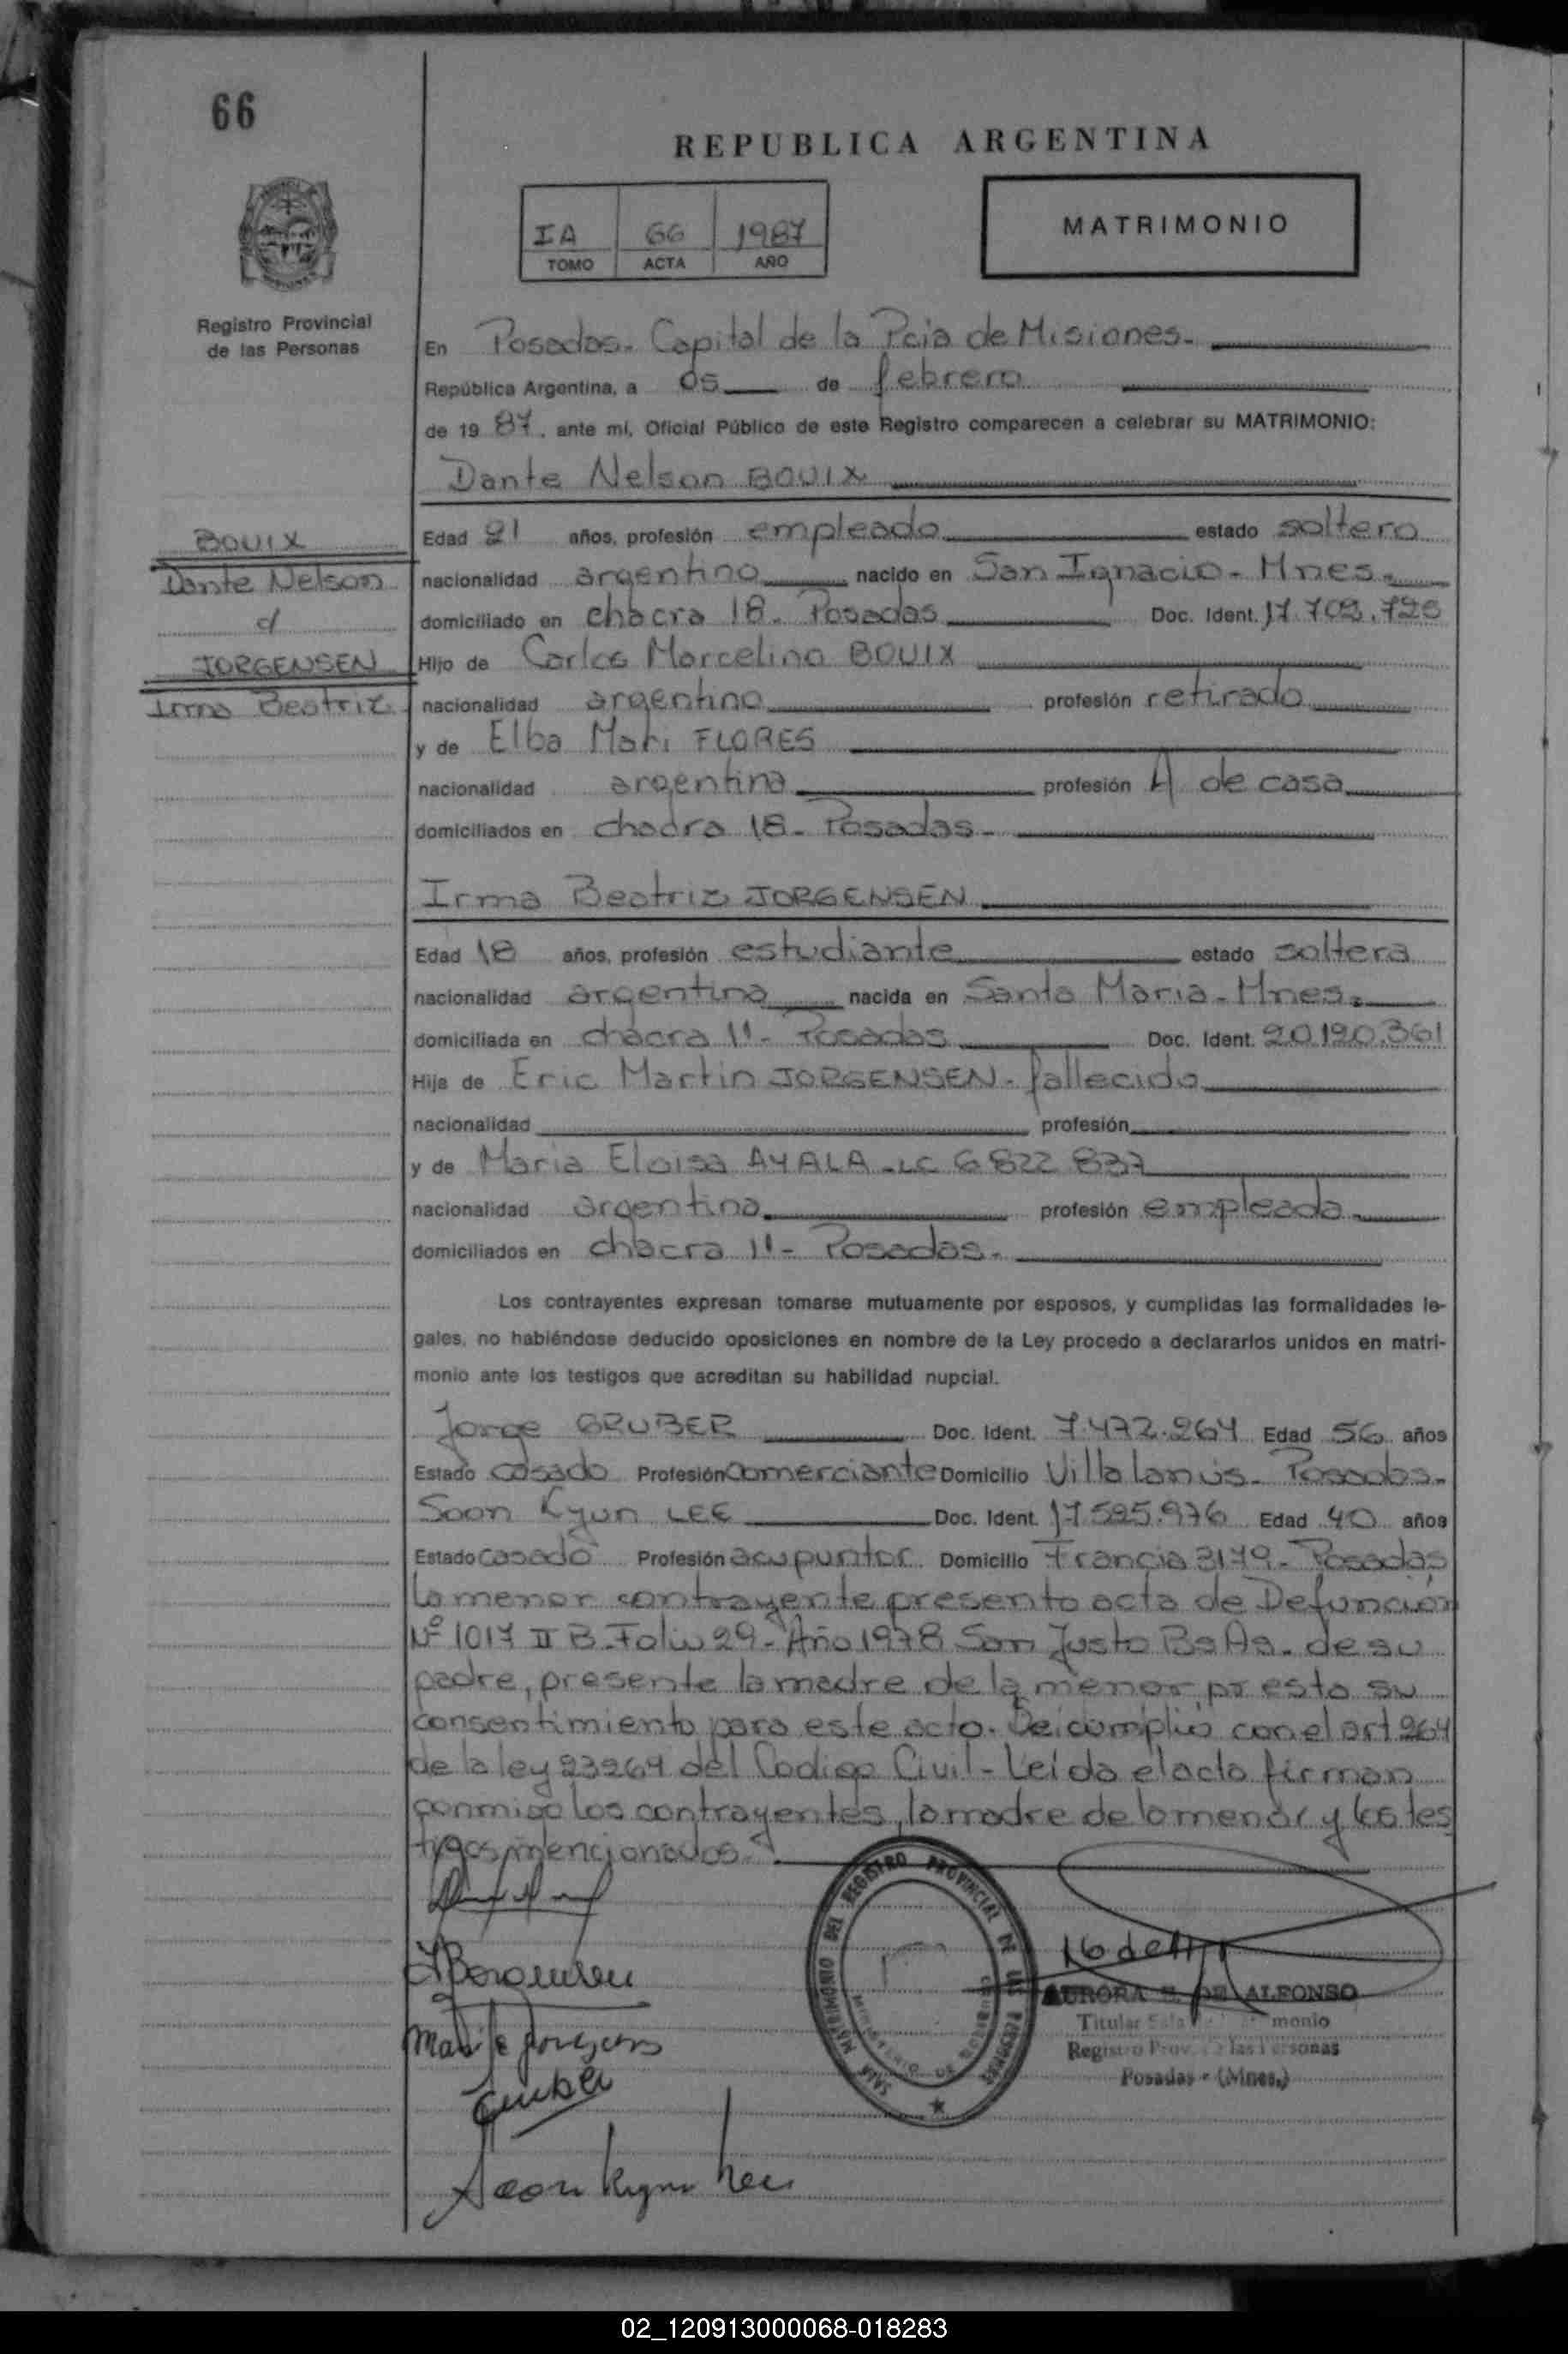 66
REPUBLICA ARGENTINA
IA 66 1987
TOMO ACTA AÑO
MATRIMONIO
Registro Provincial
de las Personas
En Posadas. Capital de la Pcia de Misiones.
República Argentina, a 05 de febrero
de 19 87, ante mí, Oficial Público de este Registro comparecen a celebrar su MATRIMONIO:
Dante Nelson BOUIX
BOUIX
Dante Nelson
c/
JORGENSEN
Irma Beatriz
Edad 21 años, profesión empleado estado soltero
nacionalidad argentino nacido en San Ignacio - Mnes.
domiciliado en chacra 18. Posadas Doc. Ident. 17.703.725
Hijo de Carlos Marcelino BOUIX
nacionalidad argentino profesión retirado
y de Elba Mari FLORES
nacionalidad argentina profesión A de casa
domiciliados en chacra 18 - Posadas -
Irma Beatriz JORGENSEN
Edad 18 años, profesión estudiante estado soltera
nacionalidad argentina nacida en Santa Maria - Mnes.
domiciliada en chacra 11 - Posadas Doc. Ident. 20.120.361
Hija de Eric Martin JORGENSEN - fallecido
nacionalidad profesión
y de Maria Eloisa AYALA - LC 6 822 837
nacionalidad argentina profesión empleada
domiciliados en chacra 11 - Posadas.
Los contrayentes expresan tomarse mutuamente por esposos, y cumplidas las formalidades le-
gales, no habiéndose deducido oposiciones en nombre de la Ley procedo a declararlos unidos en matri-
monio ante los testigos que acreditan su habilidad nupcial.
Jorge GRUBER Doc. Ident. 7.472.264 Edad 56 años
Estado casado Profesión comerciante Domicilio Villa Lanús - Posadas.
Soon Kyun LEE Doc. Ident. 17.595.976 Edad 40 años
Estado casado Profesión acupuntor Domicilio Francia 3179 - Posadas
la menor contrayente presento acta de Defunción
Nº 1017 II B. Folio 29 - Año 1978 San Justo Bs As. de su
padre, presente la madre de la menor presta su
consentimiento para este acto. Se cumplio con el art 264
de la ley 23264 del Codigo Civil - Leída el acta firman
conmigo los contrayentes, la madre de la menor y los tes
tigos mencionados.
SALA MATRIMONIO DEL REGISTRO PROVINCIAL DE LAS PERSONAS
MINISTERIO DE GOBIERNO
AURORA E. DE ALFONSO
Titular Sala Matrimonio
Registro Prov. de las Personas
Posadas - (Mnes.)
Gruber
Soon Kyun Lee
02_120913000068-018283